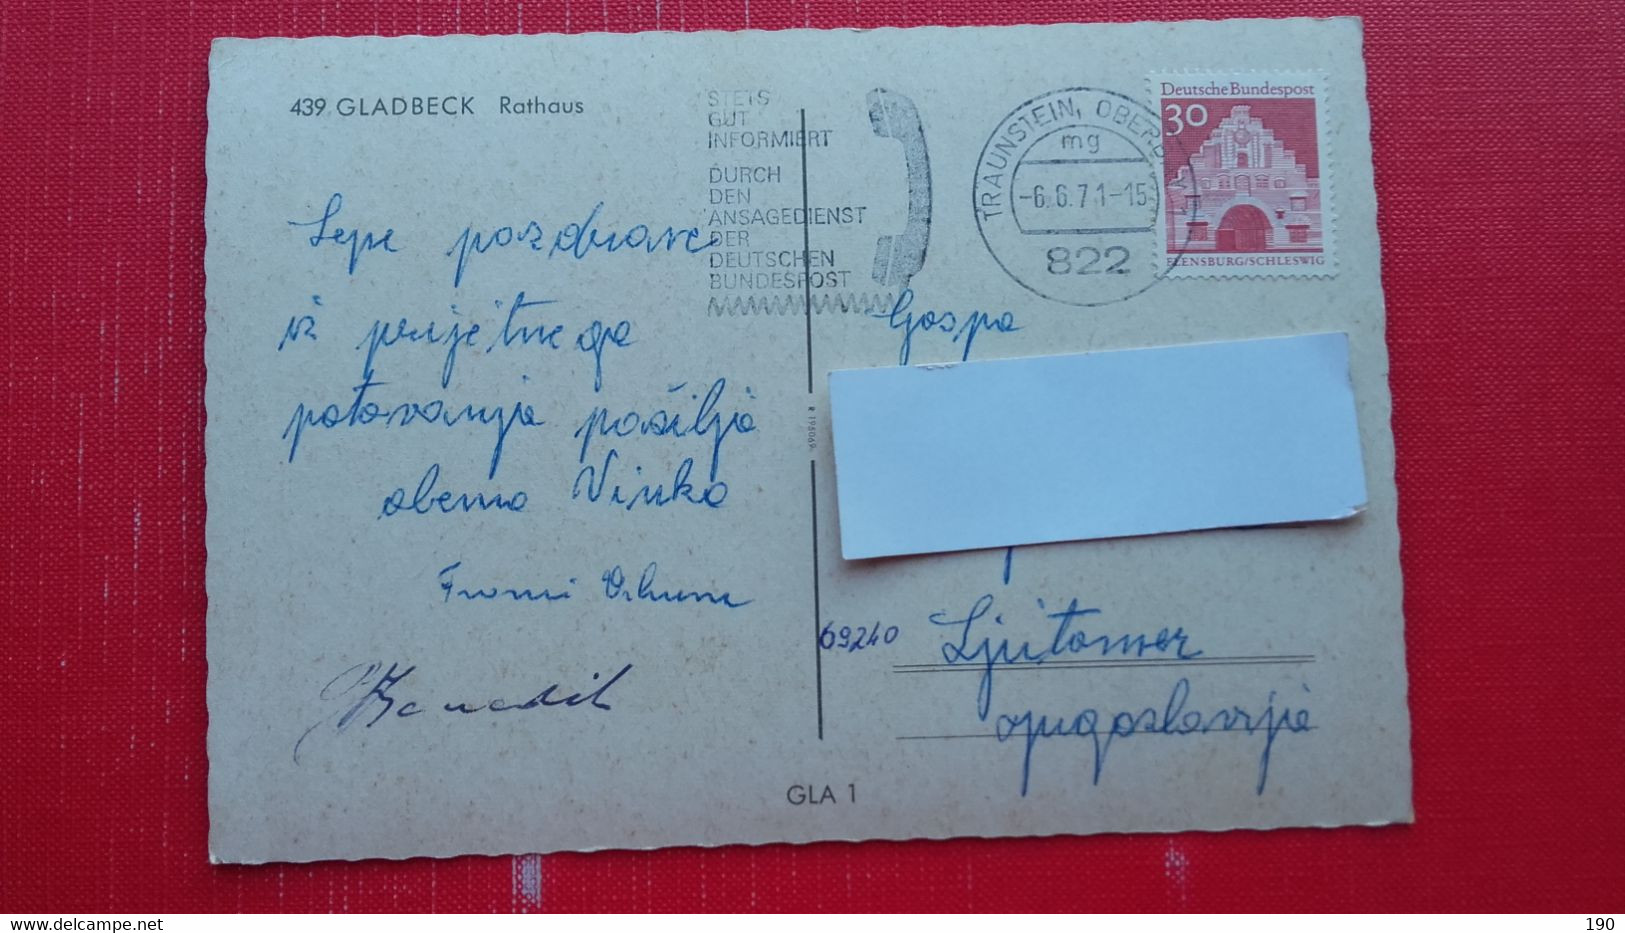 439 GLADBECK Rathaus
STETS
GUT
INFORMIERT
DURCH
DEN
ANSAGEDIENST
DER
DEUTSCHEN
BUNDESPOST
TRAUNSTEIN, OBERB
mg
-6.6.71-15
822
Deutsche Bundespost
30
FLENSBURG/SCHLESWIG
Lepe pozdrave
iz prijetnega
potovanja pošilja
obema Vinko
Gospa
69240 Ljutomer
Jugoslavija
GLA 1
delcampe.net
190